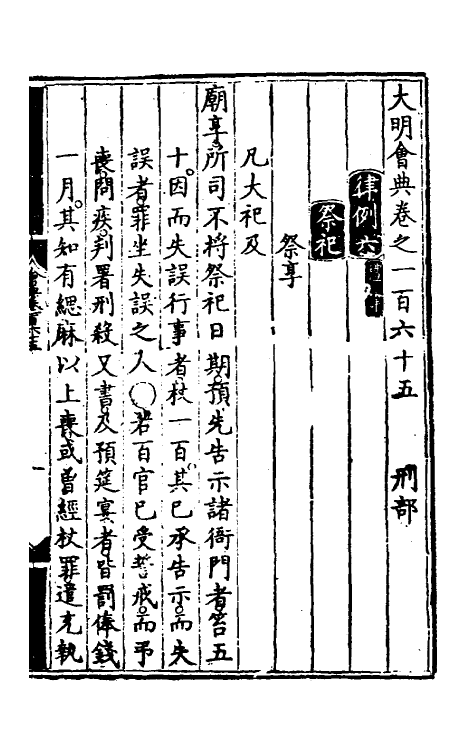 大明會典卷之一百六十五　刑部
律例六
祭祀
祭享
凡大祀及
廟享所司不將祭祀日期預先告示諸衙門者笞五
十因而失誤行事者杖一百其已承告示而失
誤者罪坐失誤之人○若百官已受誓戒而弔
喪問疾判署刑殺文書及預筵宴者皆罰俸錢
一月其知有緦麻以上喪或曾經杖罪遣充執